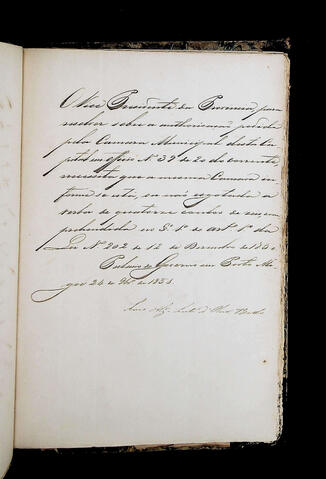 O Vice Presidente da Provincia, para
resolver sobre a authorisação pedida
pela Camara Municipal desta Ca
pital em officio Nº 39 de 20 do corrente
necessita que a mesma Camara in
forme se está, ou não esgotada a
verba de quatorze contos de reis, com
prehendida no § 1º do artº 1º da
Lei Nº 202 de 12 de Dezembro de 1850
Palacio do Governo em Porto Ale
gre 24 de 9bro de 1851
Luis